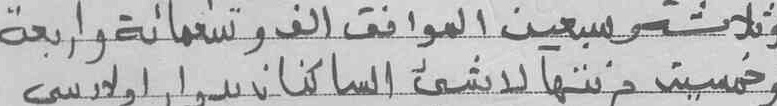 وثلاثة وسبعين الموافق الف وتسعمائة واربعة
وخمسين الساكنان بدوار اولاد سي